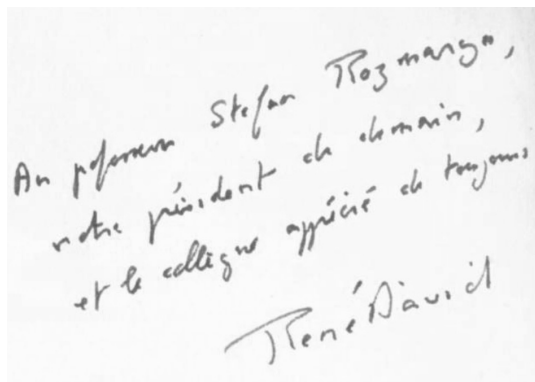 Au professeur Stefan Rozmaryn,
notre président de demain,
et le collègue apprécié de toujours
René David